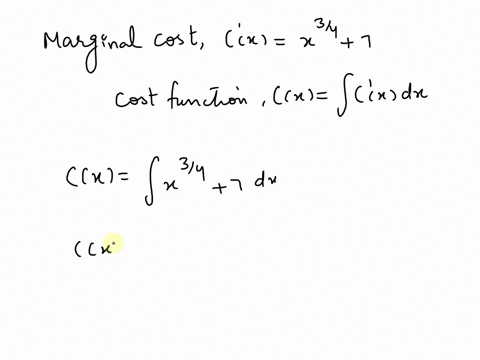 Marginal cost, C'(x) = x^{3/4} + 7
cost function, C(x) = ∫C'(x) dx
C(x) = ∫ x^{3/4} + 7 dx
C(x